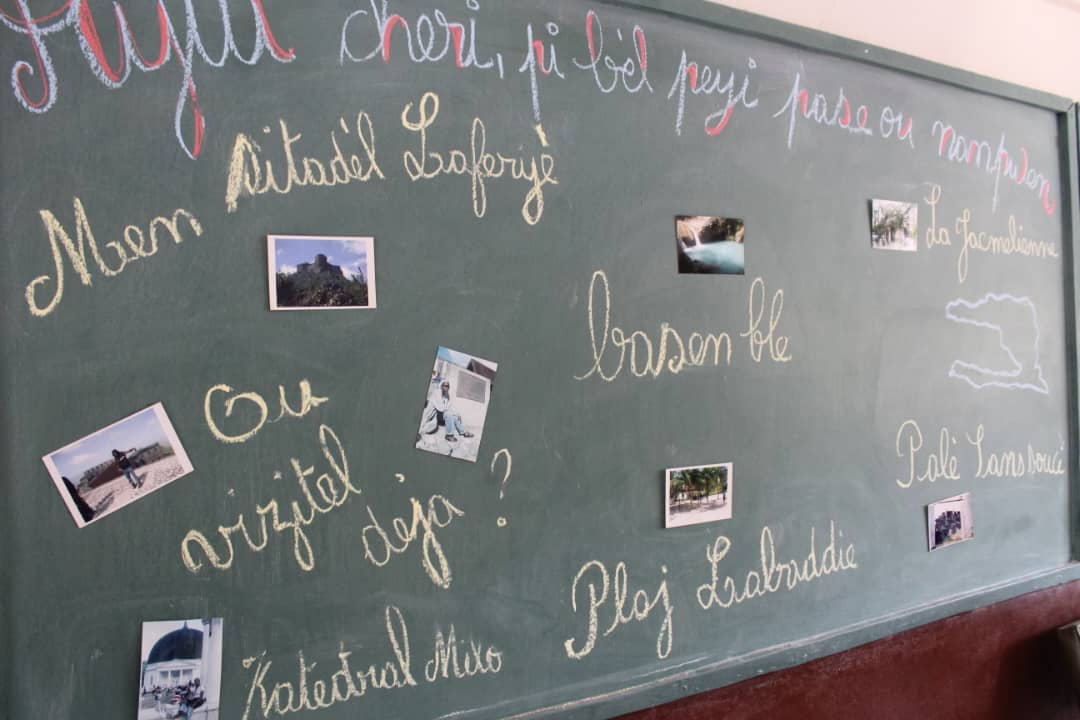 Ayiti cheri, pi bèl peyi pase ou nanpwen
Sitadèl Laferyè
Mwen
La Jacmelienne
basen ble
Ou
vizitel
deja ?
Palè Sans Souci
Plaj Labaddie
Katedral Milo